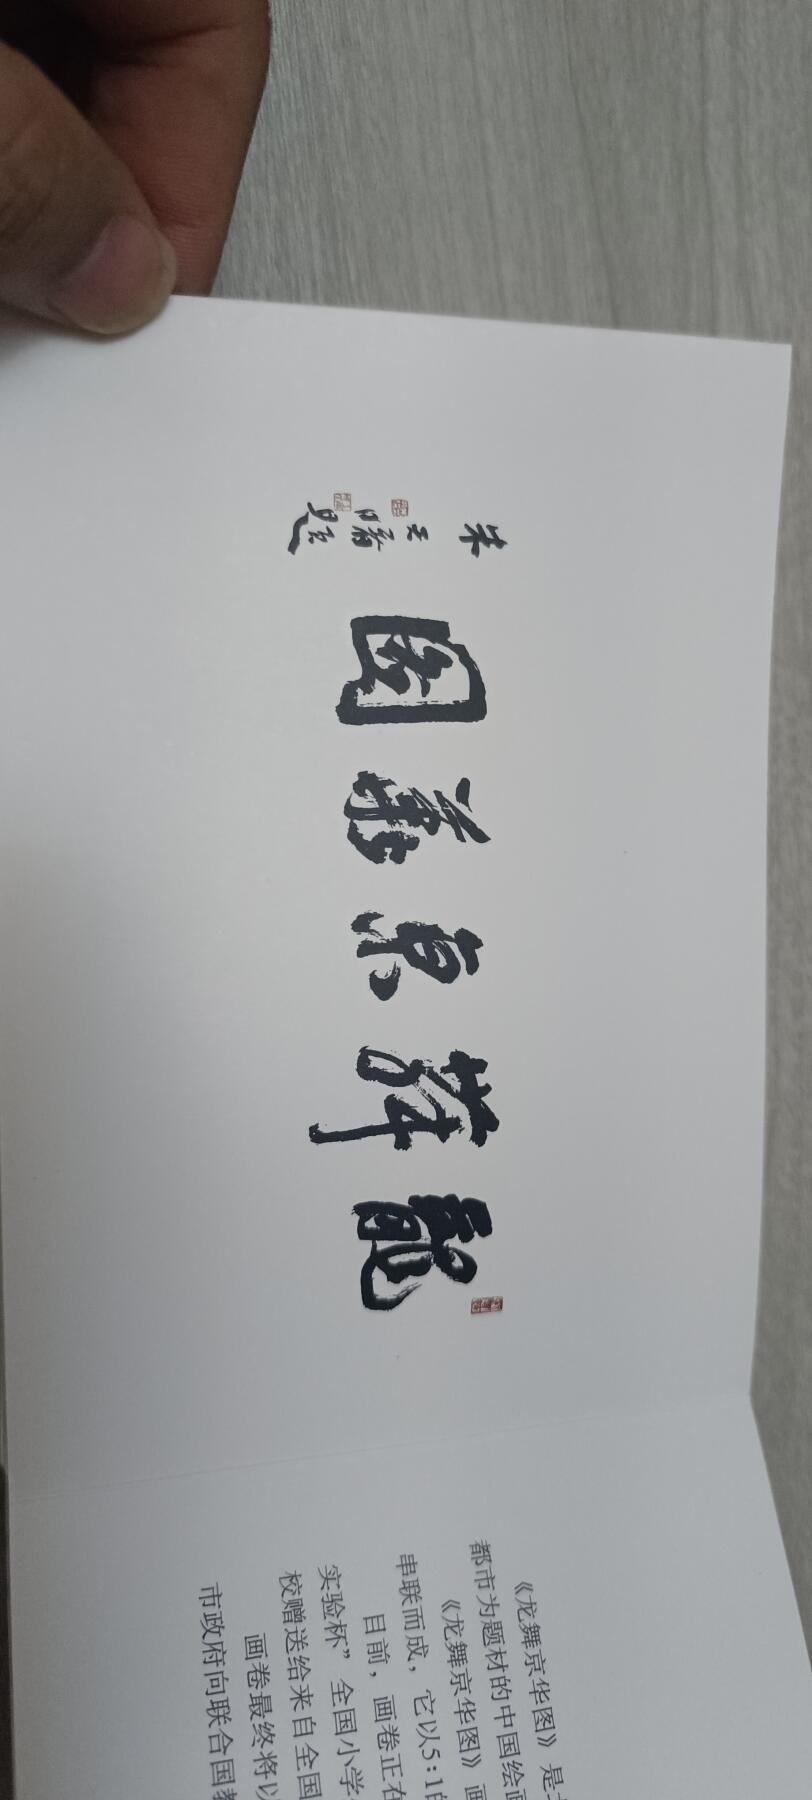 龍舞京華圖
朱
题
《龙舞京华图》是
都市为题材的中国绘画
《龙舞京华图》画
串联而成，它以5:1的
目前，画卷正在
实验杯”全国小学
校赠送给来自全国
画卷最终将以
市政府向联合国教